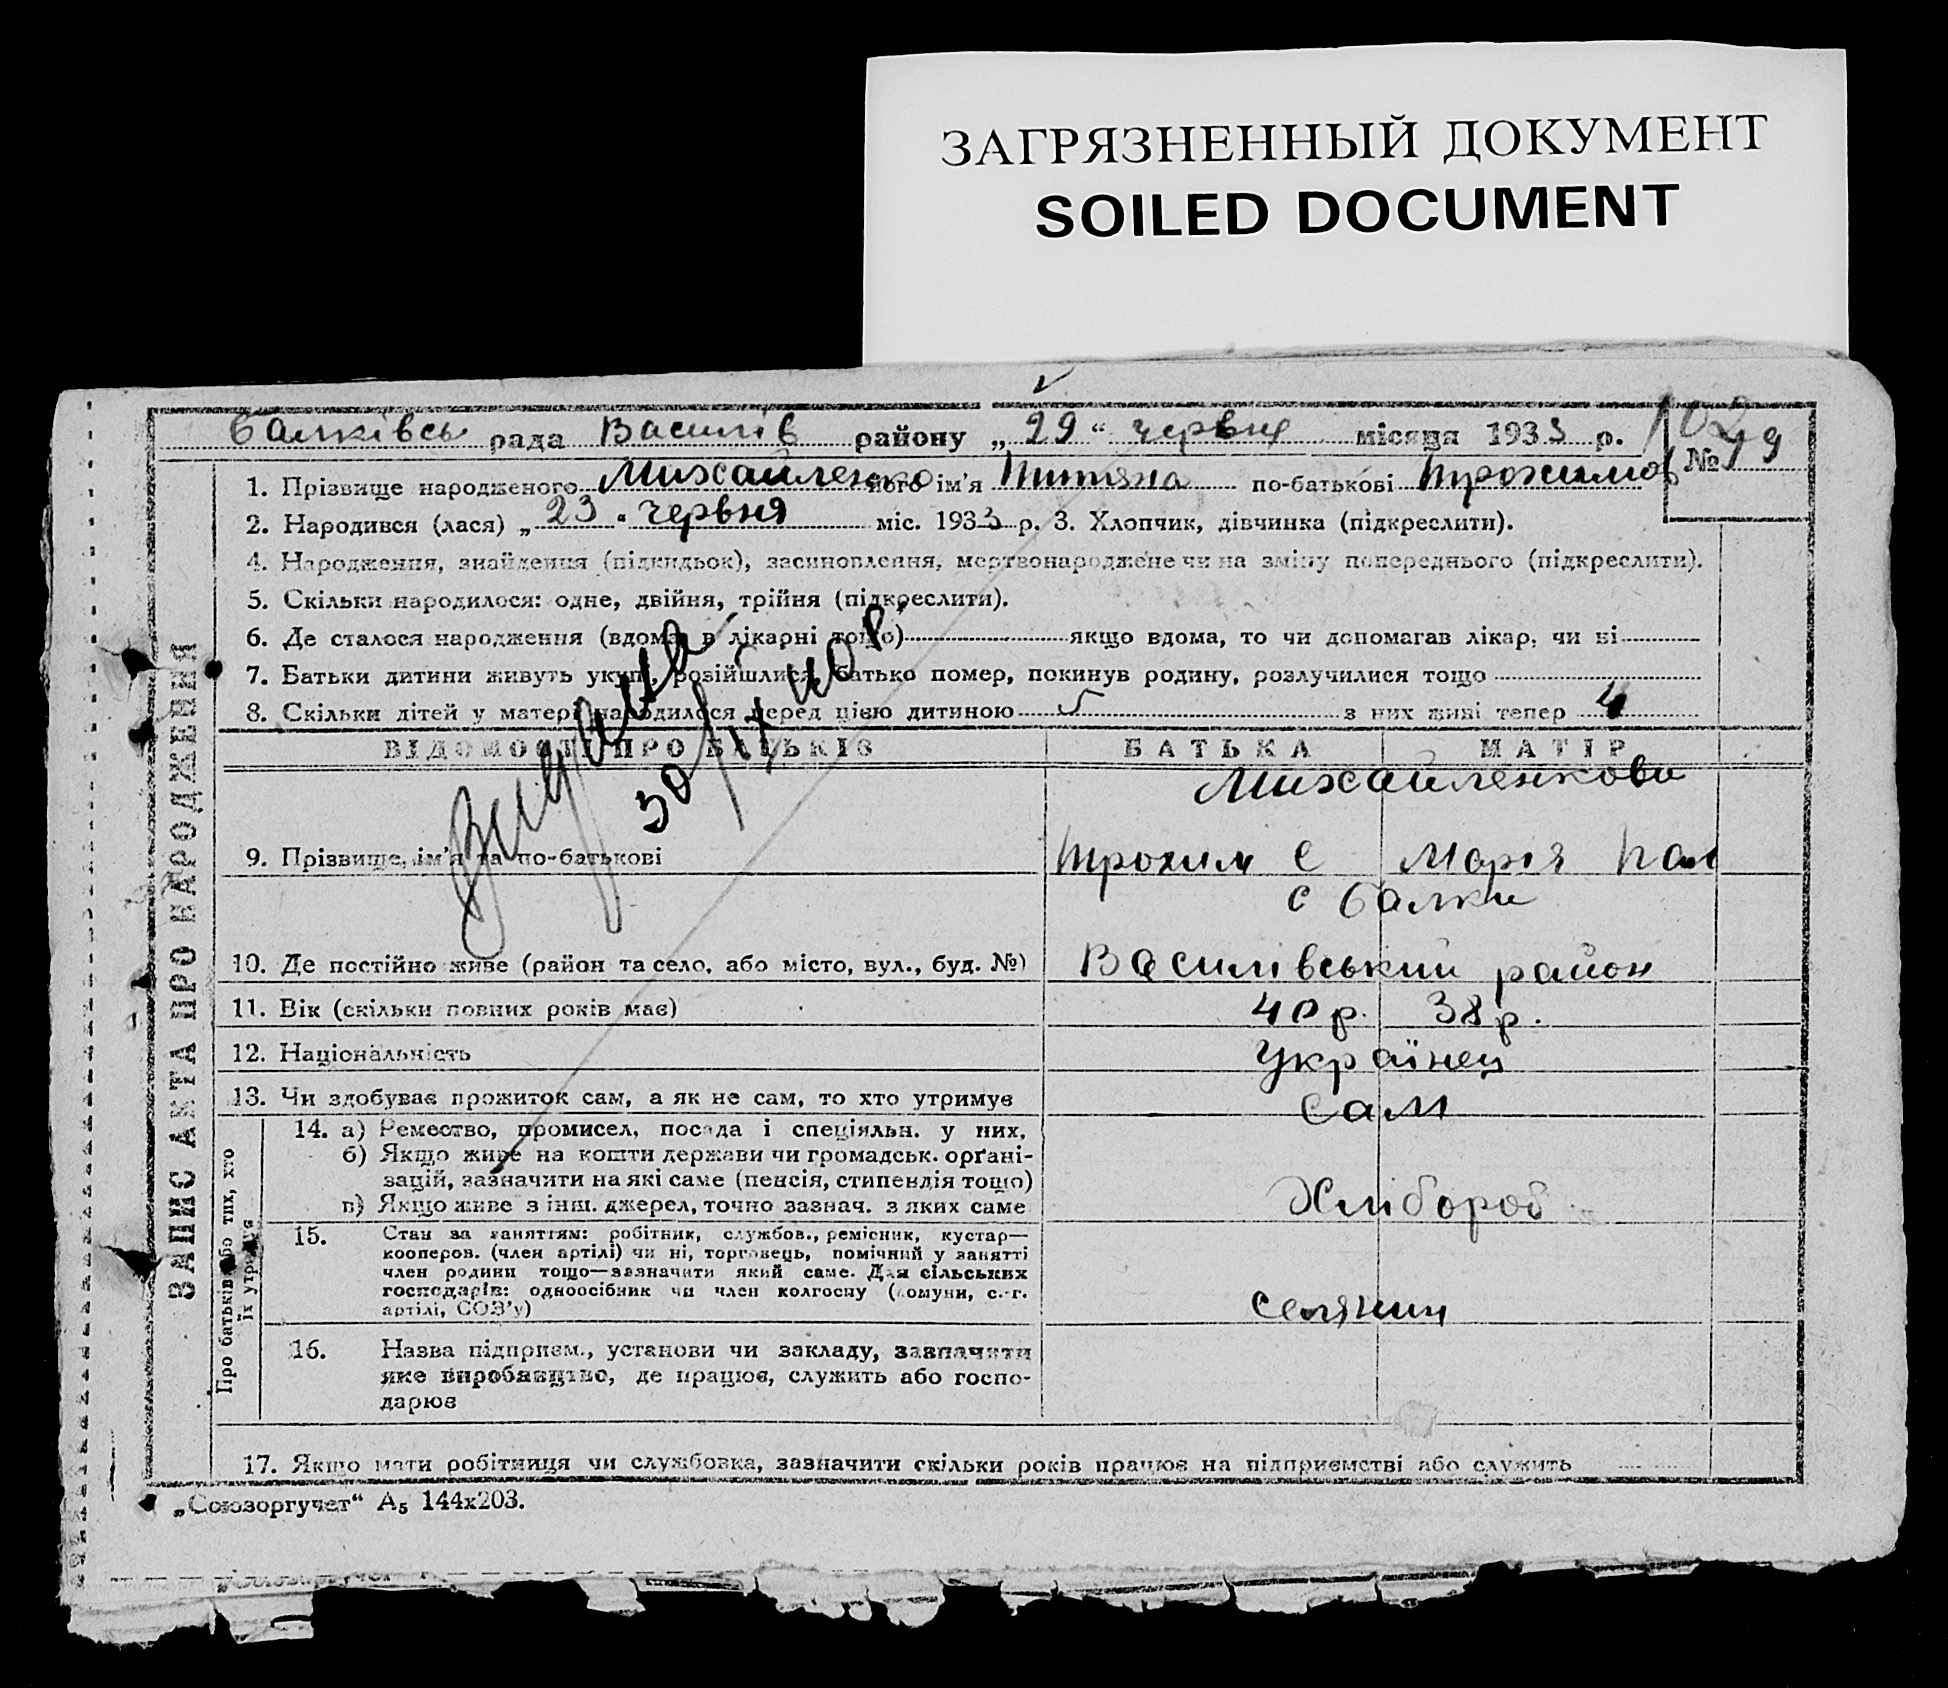 ЗАГРЯЗНЕННЫЙ ДОКУМЕНТ
SOILED DOCUMENT
Балківсь рада Василів району „29“ червня місяця 1933 р.
№ 79
102
1. Прізвище народженого Михайленко його ім'я Титяна по-батькові Трохимов
2. Народився (лася) „23“ червня міс. 1933 р. 3. Хлопчик, дівчинка (підкреслити).
4. Народження, знайдення (підкидьок), засиновлення, мертвонароджене чи на зміну попереднього (підкреслити).
5. Скільки народилося: одне, двійня, трійня (підкреслити).
6. Де сталося народження (вдома, в лікарні тощо) якщо вдома, то чи допомагав лікар, чи ні
7. Батьки дитини живуть укупі, розійшлися, батько помер, покинув родину, розлучилися тощо
8. Скільки дітей у матері народилося перед цією дитиною 5 з них живі тепер 4
ВІДОМОСТІ ПРО БАТЬКІВ БАТЬКА МАТІР
Михайленкови
9. Прізвище, ім'я та по-батькові Трохим С Марія Пав
с Балки
10. Де постійно живе (район та село, або місто, вул., буд. №) Василівський район
11. Вік (скільки повних років має) 40 р. 38 р.
12. Національність Українец
13. Чи здобуває прожиток сам, а як не сам, то хто утримує сам
14. а) Ремество, промисел, посада і спеціяльн. у них,
б) Якщо живе на кошти держави чи громадськ. орґані-
зацій, зазначити на які саме (пенсія, стипендія тощо)
в) Якщо живе з інш. джерел, точно зазнач. з яких саме Хлібороб
15. Стан за заняттям: робітник, службов., ремісник, кустар—
кооперов. (член артілі) чи ні, торговець, помічний у занятті
член родини тощо—зазначити який саме. Для сільських
господарів: одноосібник чи член колгоспу (комуни, с.-г.
артілі, СОЗ'у) селянин
16. Назва підприєм., установи чи закладу, зазначити
яке виробництво, де працює, служить або госпо-
дарює
17. Якщо мати робітниця чи службовка, зазначити скільки років працює на підприємстві або служить
„Союзоргучет“ А5 144х203.
ЗАПИС АКТА ПРО НАРОДЖЕННЯ
Про батьків або тих, хто
їх утримує
Видана
30/IX 40 р.